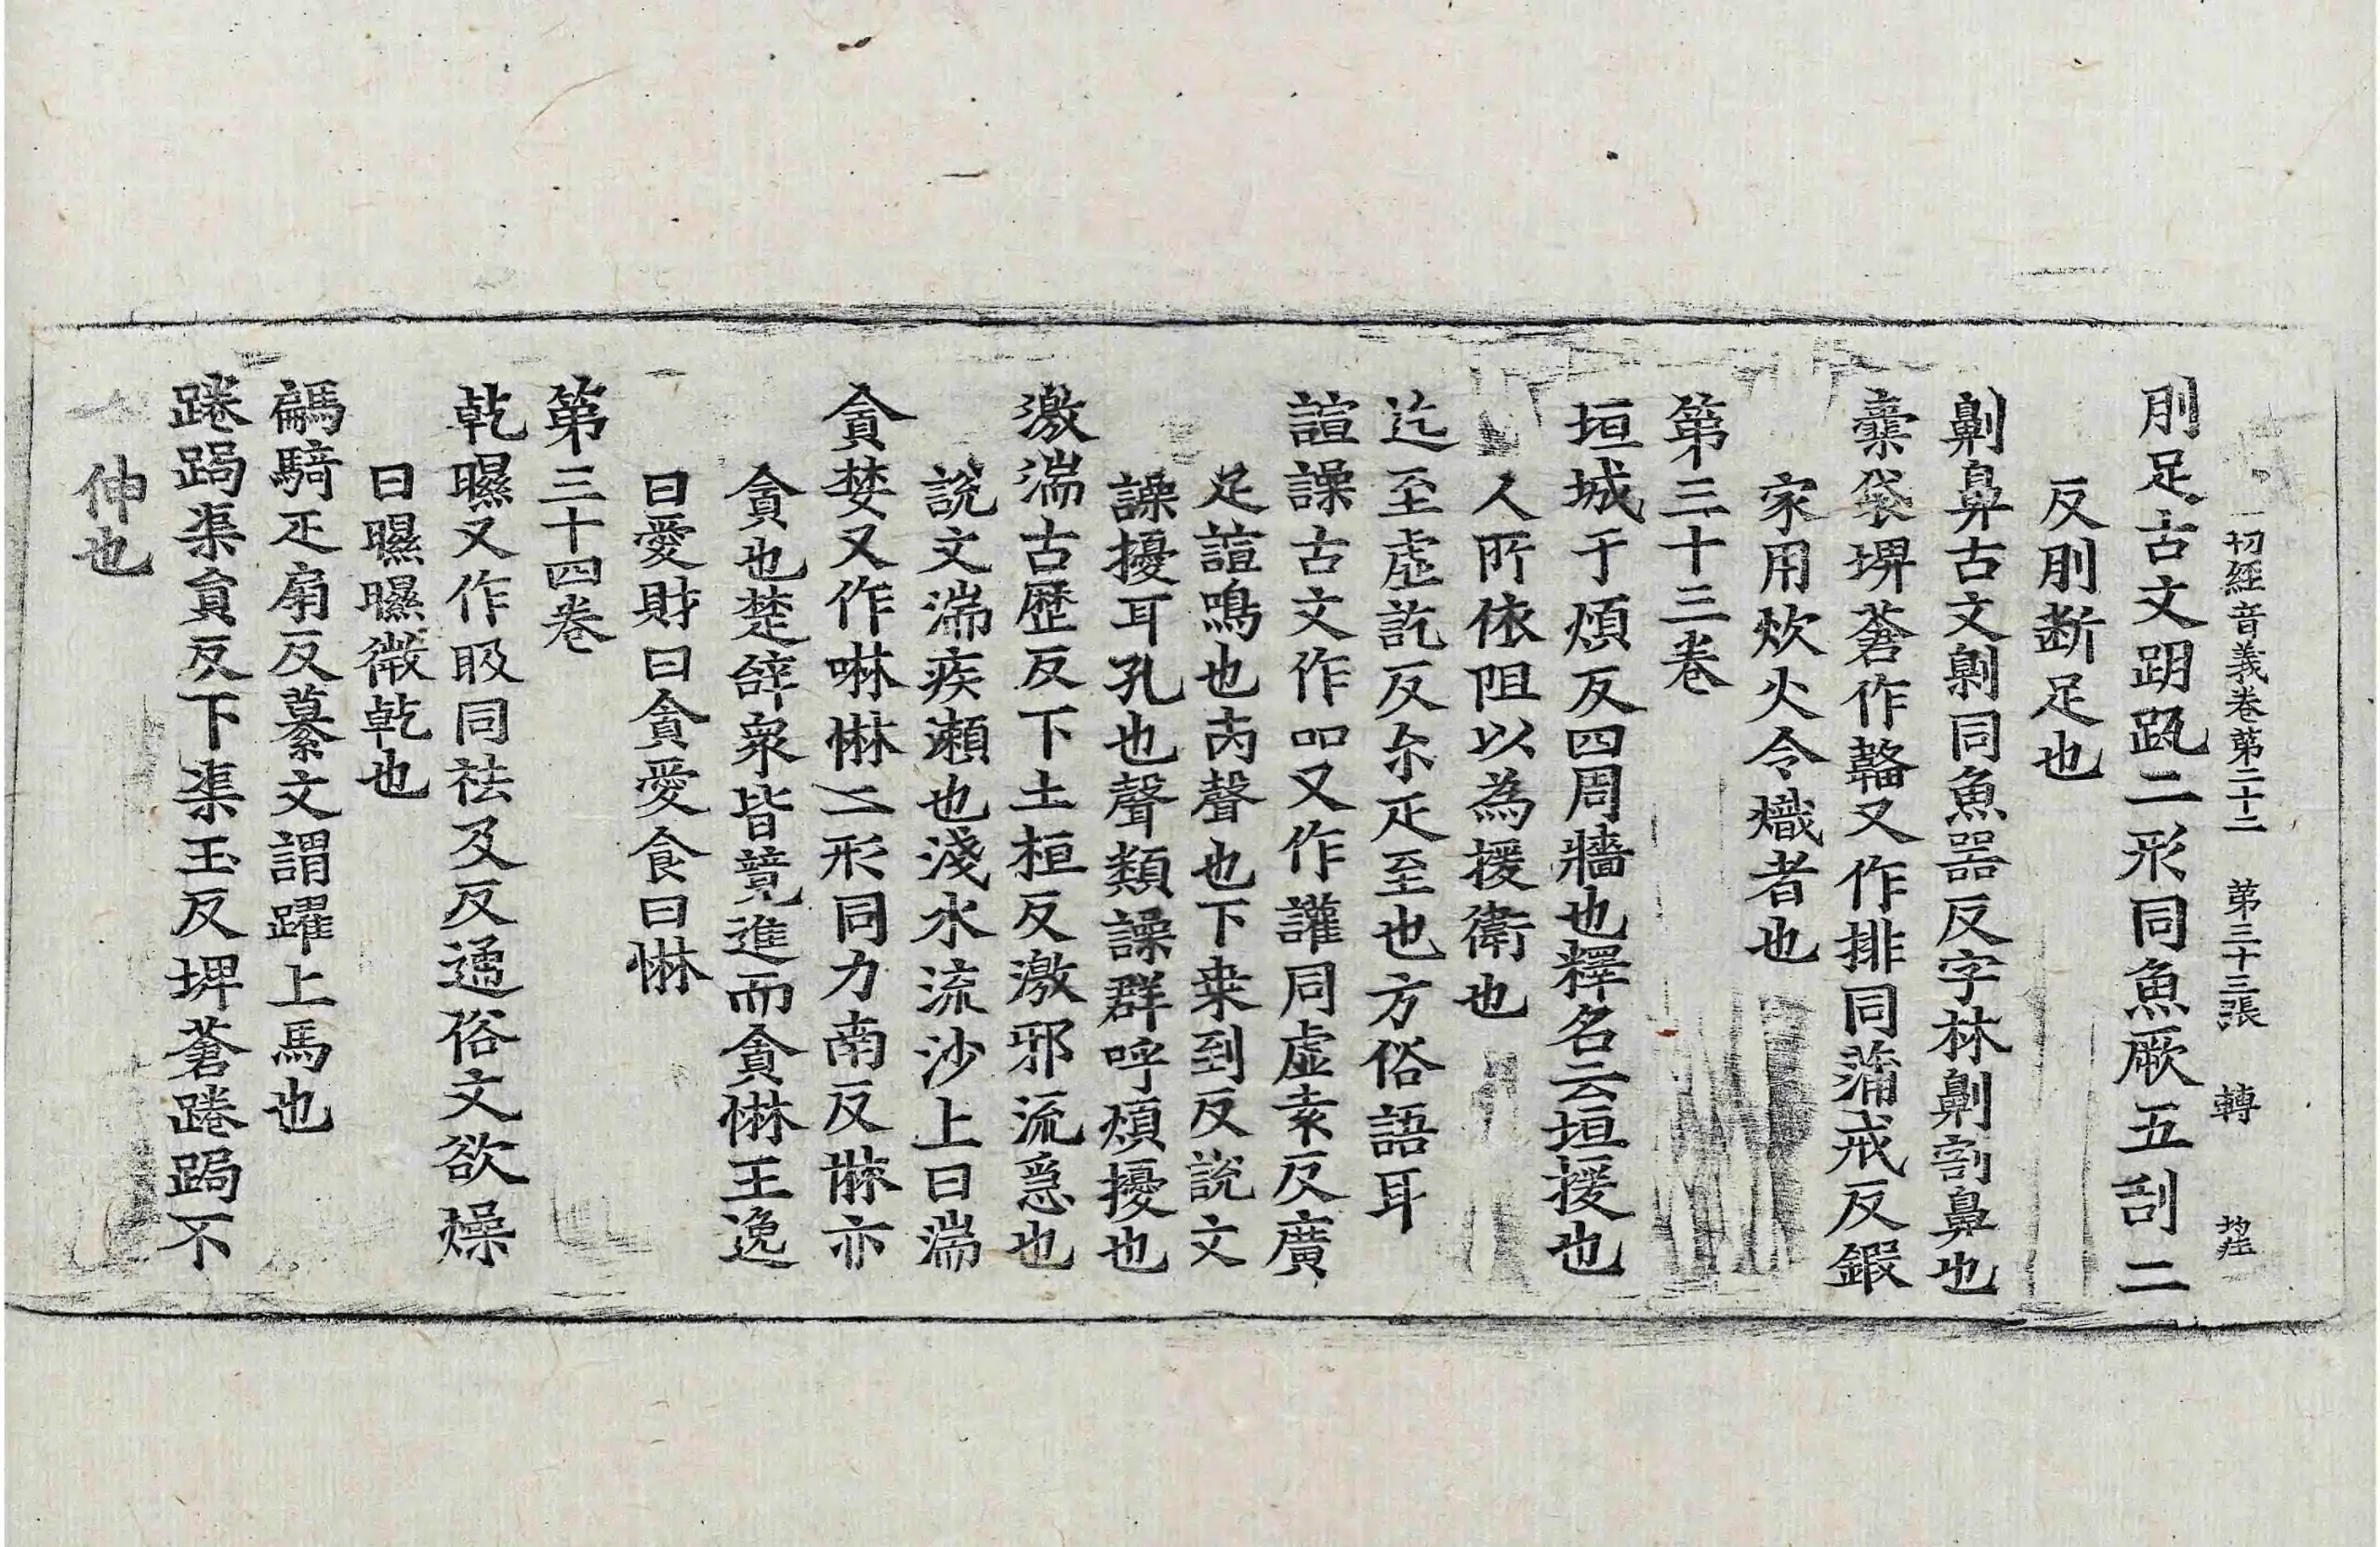 一切經音義卷第二十二 第三十三張 轉
刖足古文跀𧿁二形同魚厥五刮二
反刖断足也
劓鼻古文劓同魚器反字林劓割鼻也
橐袋埤蒼作韛又作排同蒲戒反鍜
家用炊火令熾者也
第三十三卷
垣城于煩反四周牆也釋名云垣援也
人所依阻以為援衛也
迄至虛訖反尒疋至也方俗語耳
諠譟古文作吅又作讙同虛袁反廣
疋諠鳴也䛐聲也下桒到反說文
譟擾耳孔也聲類譟群呼煩擾也
激湍古歷反下土桓反激邪流急也
說文湍疾瀬也淺水流沙上曰湍
貪婪又作啉惏二形同力南反惏亦
貪也楚辝衆皆競進而貪惏王逸
曰愛財曰貪愛食曰惏
第三十四卷
乾㬤又作㫺同祛及反通俗文欲燥
曰㬤㬤微乾也
騗騎疋扇反纂文謂躍上馬也
踡跼渠貟反下渠玉反埤蒼踡跼不
伸也